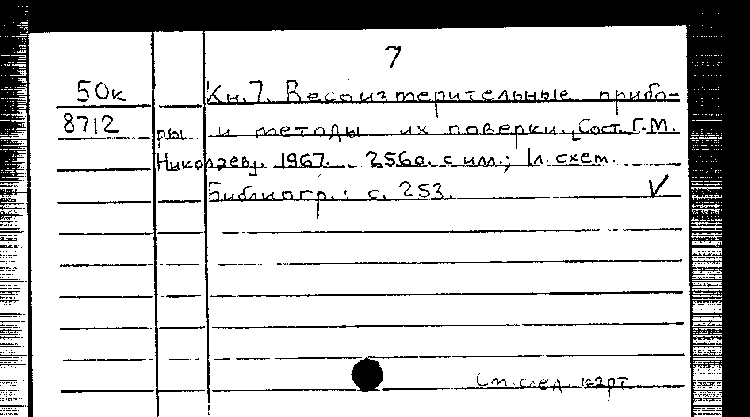 7
50к Кн.7. Весоизмерительные прибо-
8712 ры и методы их поверки. Сост. Г.М.
Николаев. 1967. 256с. с илл.; 1л. схем.
Библиогр.: с. 253. ✓
См. след. карт.